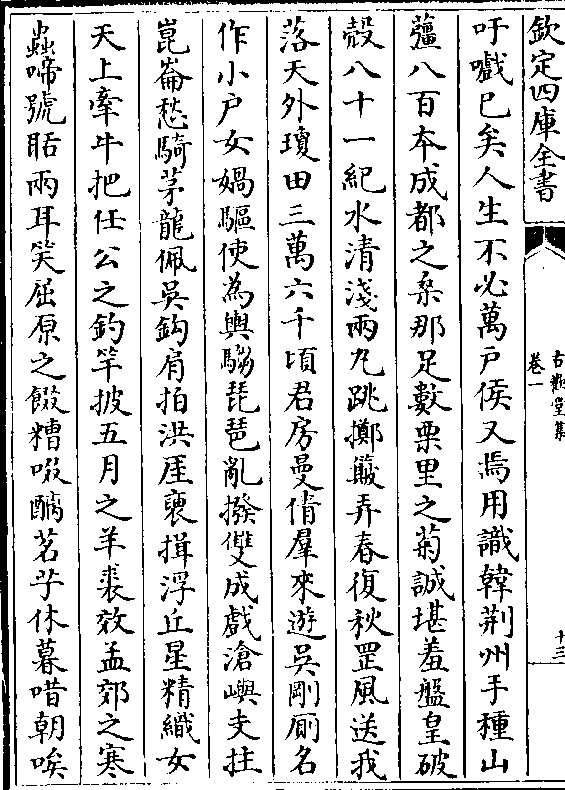 欽定四庫全書
古歡堂集
卷一
十三
吁嚱已矣人生不必萬戸侯又焉用識韓荆州手種山
薑八百夲成都之桑那足數栗里之菊誠堪羞盤皇破
殻八十一紀水清淺兩丸跳擲簸弄春復秋罡風送我
落天外瓊田三萬六千頃君房曼倩羣來遊吳剛厠名
作小戸女媧驅使為輿騶琵琶亂撥雙成戲滄嶼支拄
崑崙愁騎茅龍佩吳鈎肩拍洪厓褏揖浮丘星精織女
天上牽牛把任公之釣竿披五月之羊裘效孟郊之寒
蟲啼號聒兩耳笑屈原之餟糟啜醨茗芋休暮唶朝唉